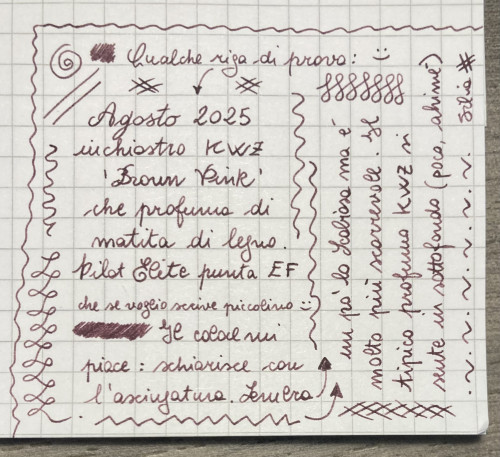 Qualche riga di prova: :)
Agosto 2025
inchiostro KWZ
'Brown Pink'
che profuma di
matita di legno.
Pilot Elite punta EF
che se voglio scrive piccolino :)
Il color mi
piace: schiarisce con
l'asciugatura. Sembra
un po' lo Scabiosa ma è
molto più scorrevole. Il
tipico profumo KWZ si
sente in sottofondo (poco, ahimè)
Silvia #